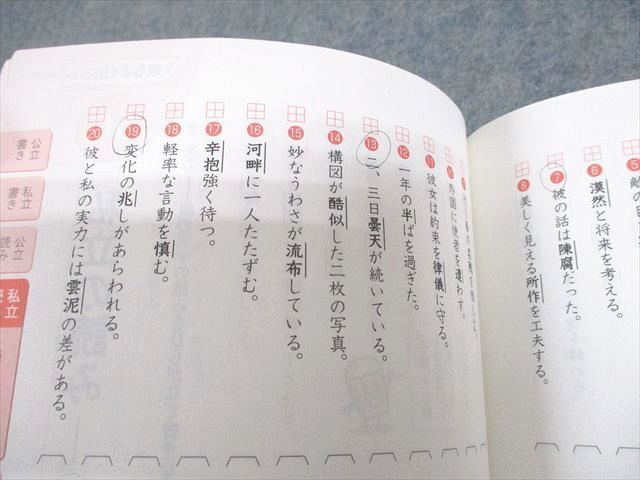 敵の
⑥漠然と将来を考える。
⑦彼の話は陳腐だった。
⑧美しく見える所作を工夫する。
⑩外国に使者を遣わす。
⑪彼女は約束を律儀に守る。
⑫一年の半ばを過ぎた。
⑬二、三日曇天が続いている。
⑭構図が酷似した二枚の写真。
⑮妙なうわさが流布している。
⑯河畔に一人たたずむ。
⑰辛抱強く待つ。
⑱軽率な言動を慎む。
⑲変化の兆しがあらわれる。
⑳彼と私の実力には雲泥の差がある。
公立
書き
私立
書き
公立
読み
私立